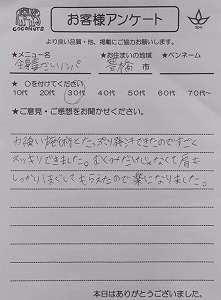 COCONUTS
お客様アンケート
より良い品質・他、掲載にご協力お願いします。
★メニュー名 ★お住まいの地域 ★ペンネーム
ごしリンパ 豊橋 市
★ ○を付けてください。
10代 20代 30代 40代 50代 60代 70代~
★ご意見・ご感想をお聞かせください。
力強い施術とたっぷり発汗できたのですごく
スッキリできました。むくみだけじゃなくて肩も
しっかりほぐしてもらえたので楽になりました。
本日はありがとうございました。